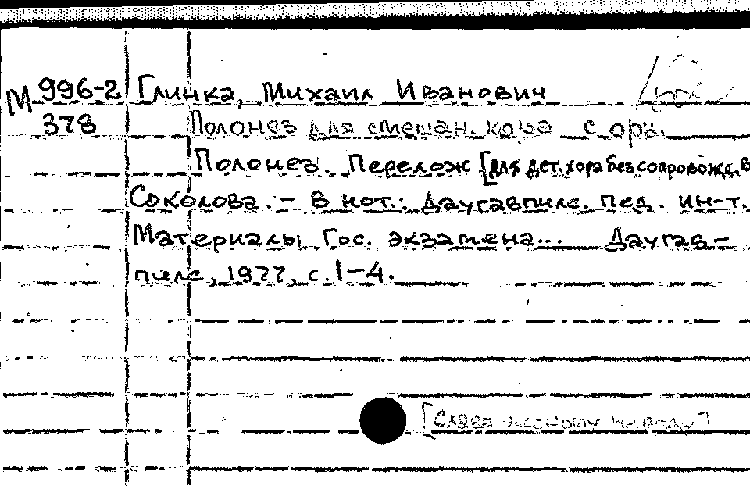 М 996-2 Глинка, Михаил Иванович
378 Полонез для смешан. хора с орк.
Полонез. Перелож [для дет. хора без сопровожд. В
Соколова. - В нот.: Даугавпилс. пед. ин-т.
Материалы Гос. экзамена... Даугав-
пилс, 1977, с. 1-4.
[Слава